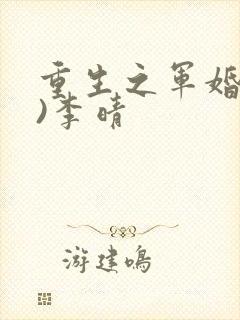 重生之军婚
)李晴
游建鸣